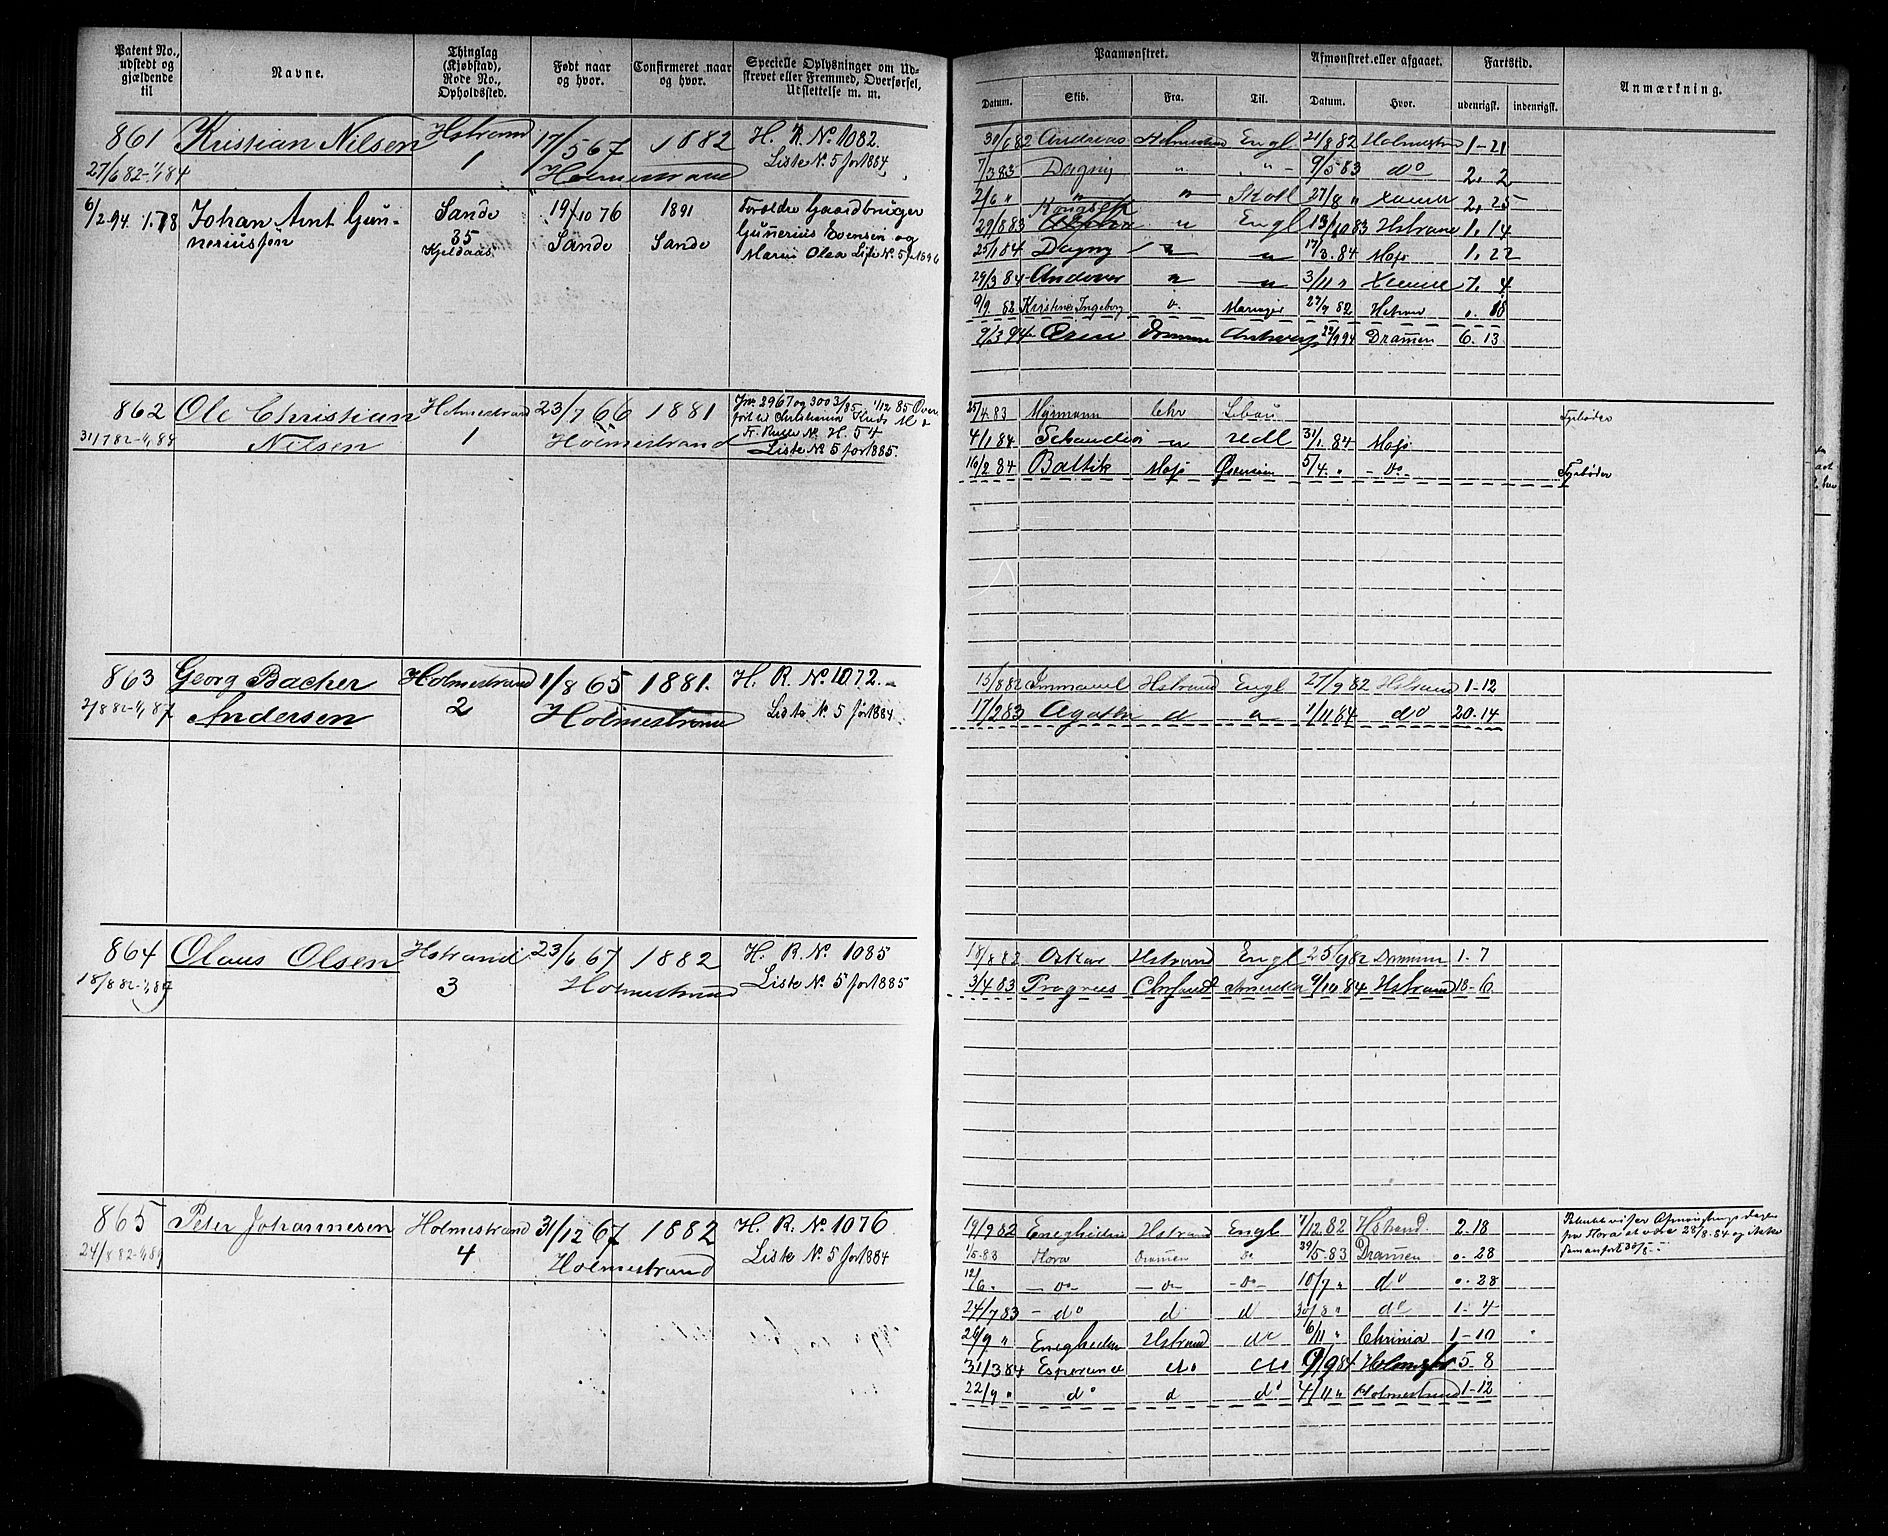 Patent No., udstedt og gjældende til
Navne.
Thinglag (Kjøbstad), Rode No., Opholdssted.
Født naar og hvor.
Confirmeret naar og hvor.
Specielle Oplysninger om Udskrevet eller Fremmed, Overførsel, Udslettelse m. m.
861 Kristian Nilsen Hstrand 17/5 67 1882 H. R. No 1082.
27/6 82-1/1 84 1 Holmestrand Liste No 5 for 1884
6/2 94 Johan Arnt Gun- Sande 19/10 76 1891 Forældre Gaardbruger
neriussen 35 Sande Sande Gunerius Evensen og
Kjeldaas Maren Olea Liste No 5 f 1896
862 Ole Christian Holmestrand 23/7 66 1881 Jnr. 2967 og 3003/85 1/12 85 Over
31/7 82-1/1 84 Nilsen 1 Holmestrand
H. 54
Liste No 5 for 1885.
863 Georg Bacher Holmestrand 1/8 65 1881. H. R. No 1072.
2/8 82-1/1 87 Andersen 2 Holmestrand Liste No 5 for 1884
864 Olaus Olsen Hstrand 23/6 67 1882 H. R. No 1085
18/8 82-1/1 89 3 Holmestrand Liste No 5 for 1885
865 Peter Johannesen Holmestrand 31/12 67 1882 H. R. No 1076
24/8 82-1/1 89 4 Holmestrand Liste No 5 for 1884
Paamønstret.
Afmønstret eller afgaaet.
Fartstid.
Anmærkning.
Datum. Skib. Fra. Til. Datum. Hvor. udenrigst. indenrigst.
30/6 82 Andreas Holmestrand Engl 21/8 82 Holmestrand 1-21
7/3 83 Dagny " " 9/5 83 do 2, 2
2/6 " " " Skotl 27/8 " 2, 25
29/8 83 " Engl 13/10 83 Hstrand 1, 14
25/1 84 Dagny " " 17/3. 84 Moss 1. 22
29/3 84 " " 3/11 " 7. 4
9/9. 82 Kristine Ingeborg 27/9 82 Hstrand
9/3 94 Drammen Antwerp 22/9 94 Dramen 6. 13
25/4. 83 Chr Libau Fyrbøder
4/1 84 " 31/1. 84 Moss
16/2 84 Baltik Moss 5/4. " - do - Fyrbøder
15/8 82 Immanuel Hstrand Engl 27/9 82 Hstrand 1-12
17/2 83 Agathe d " 1/11 84 do 20. 14
18/8 82 Oskar Hstrand Engl 25/9 82 Drammen 1. 7
3/4 83 Progress Chrsand Amerika 9/10 84 Hstrand 18-6
19/9 82 Enigheden Hstrand Engl 7/12. 82 Hstrand. 2. 18
1/5. 83 Flora Dramen do 29/5. 83 Dramen 0. 28
12/6. - do - - do - - do - 10/7 " do 0. 28
24/7 83 - do d d 30/8 " do 1. 4
26/9 " Enigheden Hstrand do 6/11 " Chrinia 1-10
31/3 84 Esperance do do 9/9 84 Holmestr 5-8
22/9 " do d do 4/11 " Holmestrand 1-12